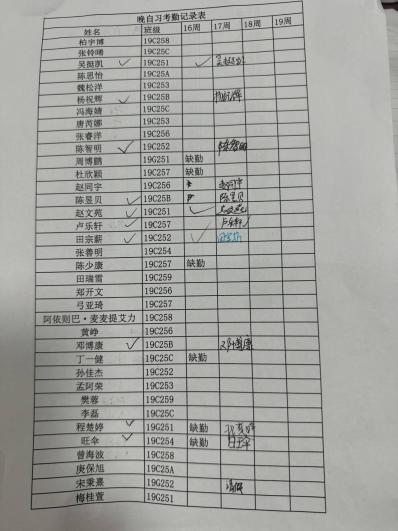 晚自习考勤记录表
姓名 班级 16周 17周 18周 19周
柏宇博 19C258
张铃晞 19C25C
吴挺凯 ✓ 19C251 ✓
陈思怡 19C25A
魏松洋 19C253
杨祝辉 ✓ 19C25B 杨祝辉
冯海婧 19C25C
唐芮娜 19C253
张睿洋 19C256
陈智明 ✓ 19C252 陈智明
周博鹏 19G251 缺勤
杜欣颖 19C257 缺勤
赵同宇 19C256 赵同宇
陈昱贝 ✓ 19C25B 陈昱贝
赵文苑 ✓ 19C251 ✓
卢乐轩 ✓ 19C257 卢乐轩
田宗薪 ✓ 19C252 ✓ 田宗薪
张善明 19C254
陈少康 19C257 缺勤
田瑞雪 19C259
郑开文 19C256
弓亚琦 19C257
阿依则巴·麦麦提艾力 19C258
黄峥 19C256
邓博康 ✓ 19C25B 邓博康
丁一健 19C25C 缺勤
孙佳杰 19C252
孟阿荣 19C253
樊蓉 19C259
李磊 19C25C
程楚婷 ✓ 19G251 缺勤
旺伞 ✓ 19C254 缺勤
曾海波 19C258
庚保旭 19C25A
宋秉熹 19G252
梅桂萱 19G251